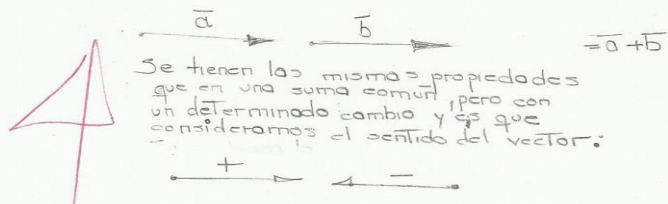 a̅ b̅ = a̅ + b̅
Se tienen las mismas propiedades
que en una suma común, pero con
un determinado cambio y es que
consideramos el sentido del vector:
+ −